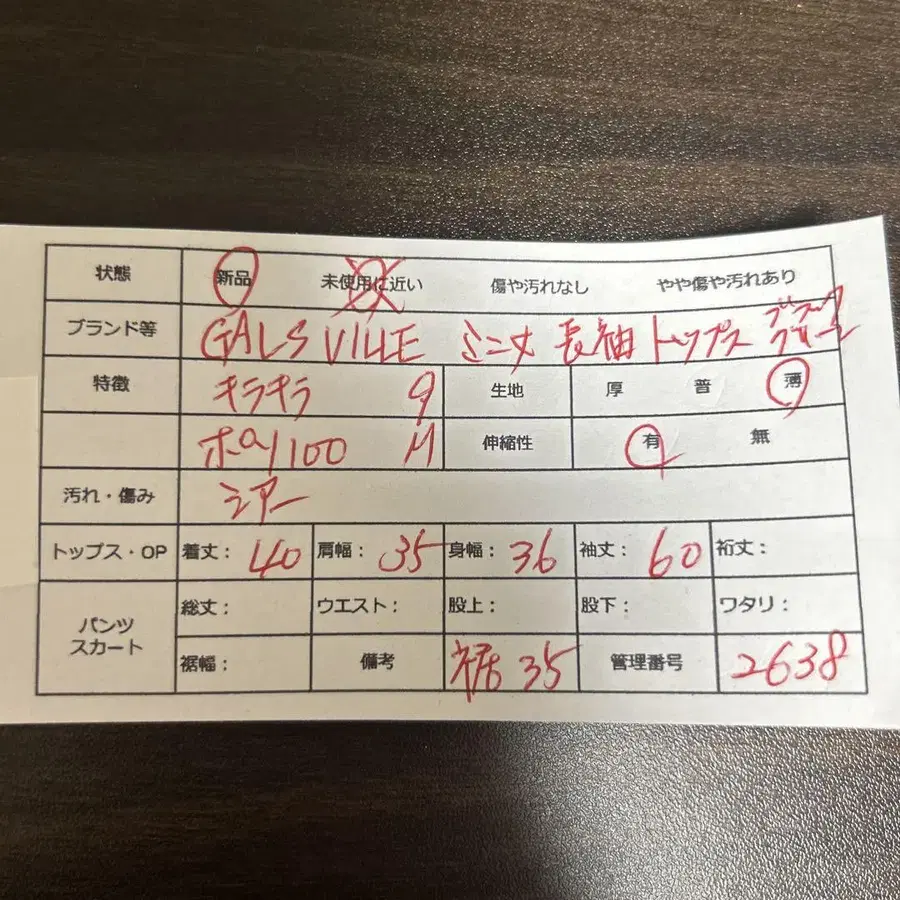 状態 新品 未使用に近い 傷や汚れなし やや傷や汚れあり
ブランド等 GALS VILLE ミニ丈 長袖 トップス ブラック グリーン
特徴 キラキラ 9 生地 厚 普 薄
ポリ100 M 伸縮性 有 無
汚れ・傷み シアー
トップス・OP 着丈: 40 肩幅: 35 身幅: 36 袖丈: 60 裄丈:
パンツ スカート 総丈: ウエスト: 股上: 股下: ワタリ:
裾幅: 備考 裾 35 管理番号 2638